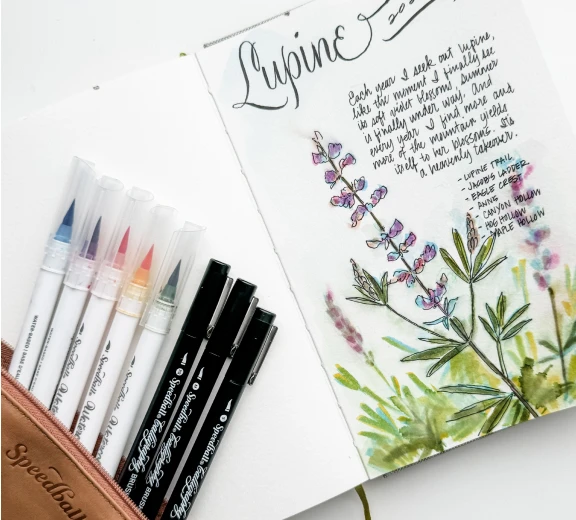 Lupine
Each year I seek out lupine,
like the moment I finally see
its soft violet blossoms, summer
is finally under way. And
every year I find more and
more of the mountain yields
itself to her blossoms. It's
a heavenly takeover.
- LUPINE TRAIL
- JACOB'S LADDER
- EAGLE CREST
- ANNE
- CANYON HOLLOW
- HOG HOLLOW
- MAPLE HOLLOW
WATER-BASED
Speedball
Speedball Calligraphy BRUSH
Speedball Calligraphy BRUSH
Speedball Calligraphy
Speedball